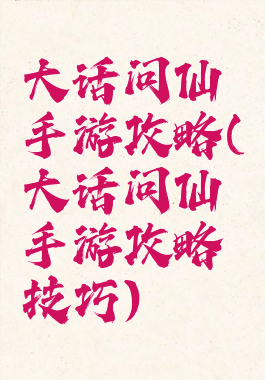 大话问仙
手游攻略(
大话问仙
手游攻略
技巧)